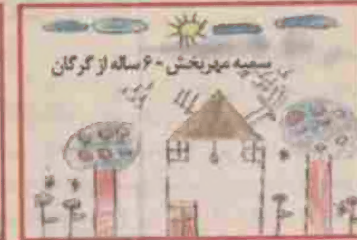 سمیه مهربخش - ۶ ساله از گرگان